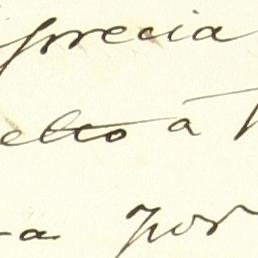 precia
elto á
a por